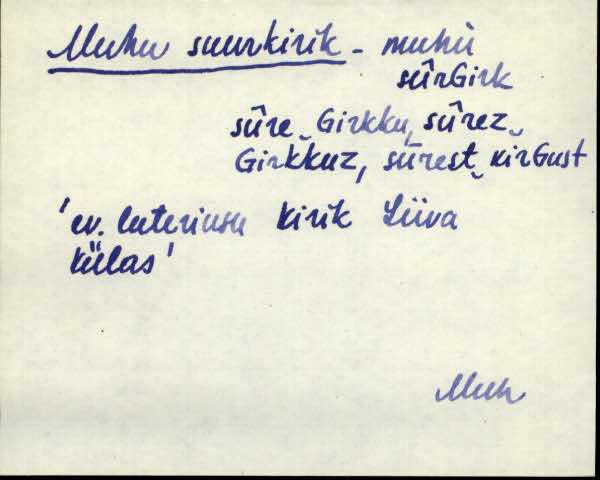 Muhu suurkirik - muhu
sûrGirk
sûre‿Girkku, sûrez‿
Girkkuz, sûrest‿kirGust
'ev. luteriusu kirik Liiva
külas'
Muh